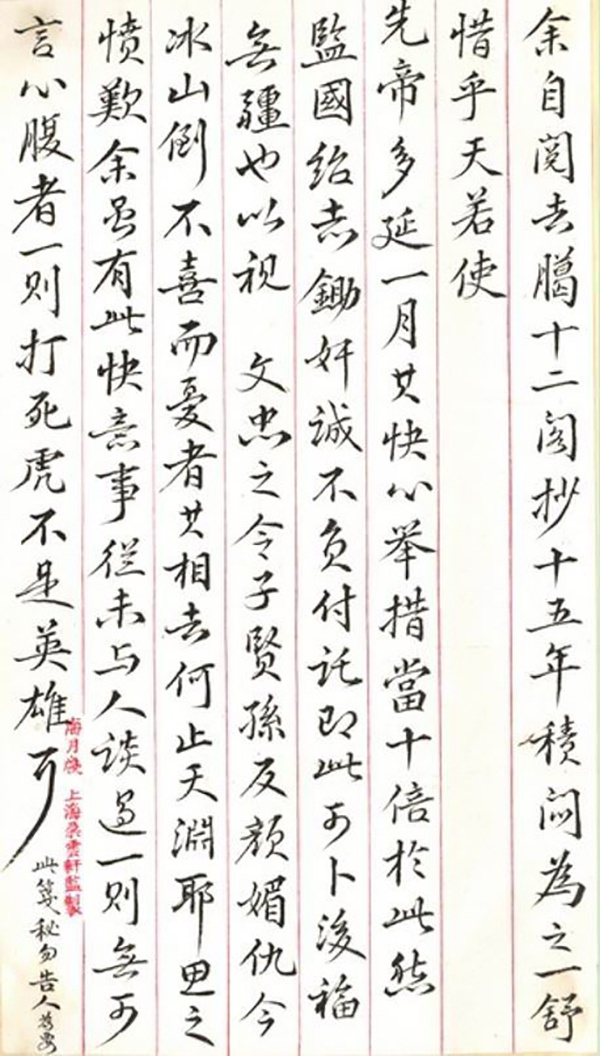 余自閱去臈十二閣抄十五年積悶為之一舒
惜乎天若使
先帝多延一月其快心举措當十倍於此然
監國紹志鋤奸誠不負付託即此可卜後福
無疆也以視 文忠之令子賢孫反顏媚仇今
冰山倒不喜而憂者其相去何止天淵耶思之
憤歎余虽有此快意事從未与人談過一則無可
言心腹者一則打死虎不足英雄耳
此箋秘勿告人為要
海月牋 上海朵雲軒監製